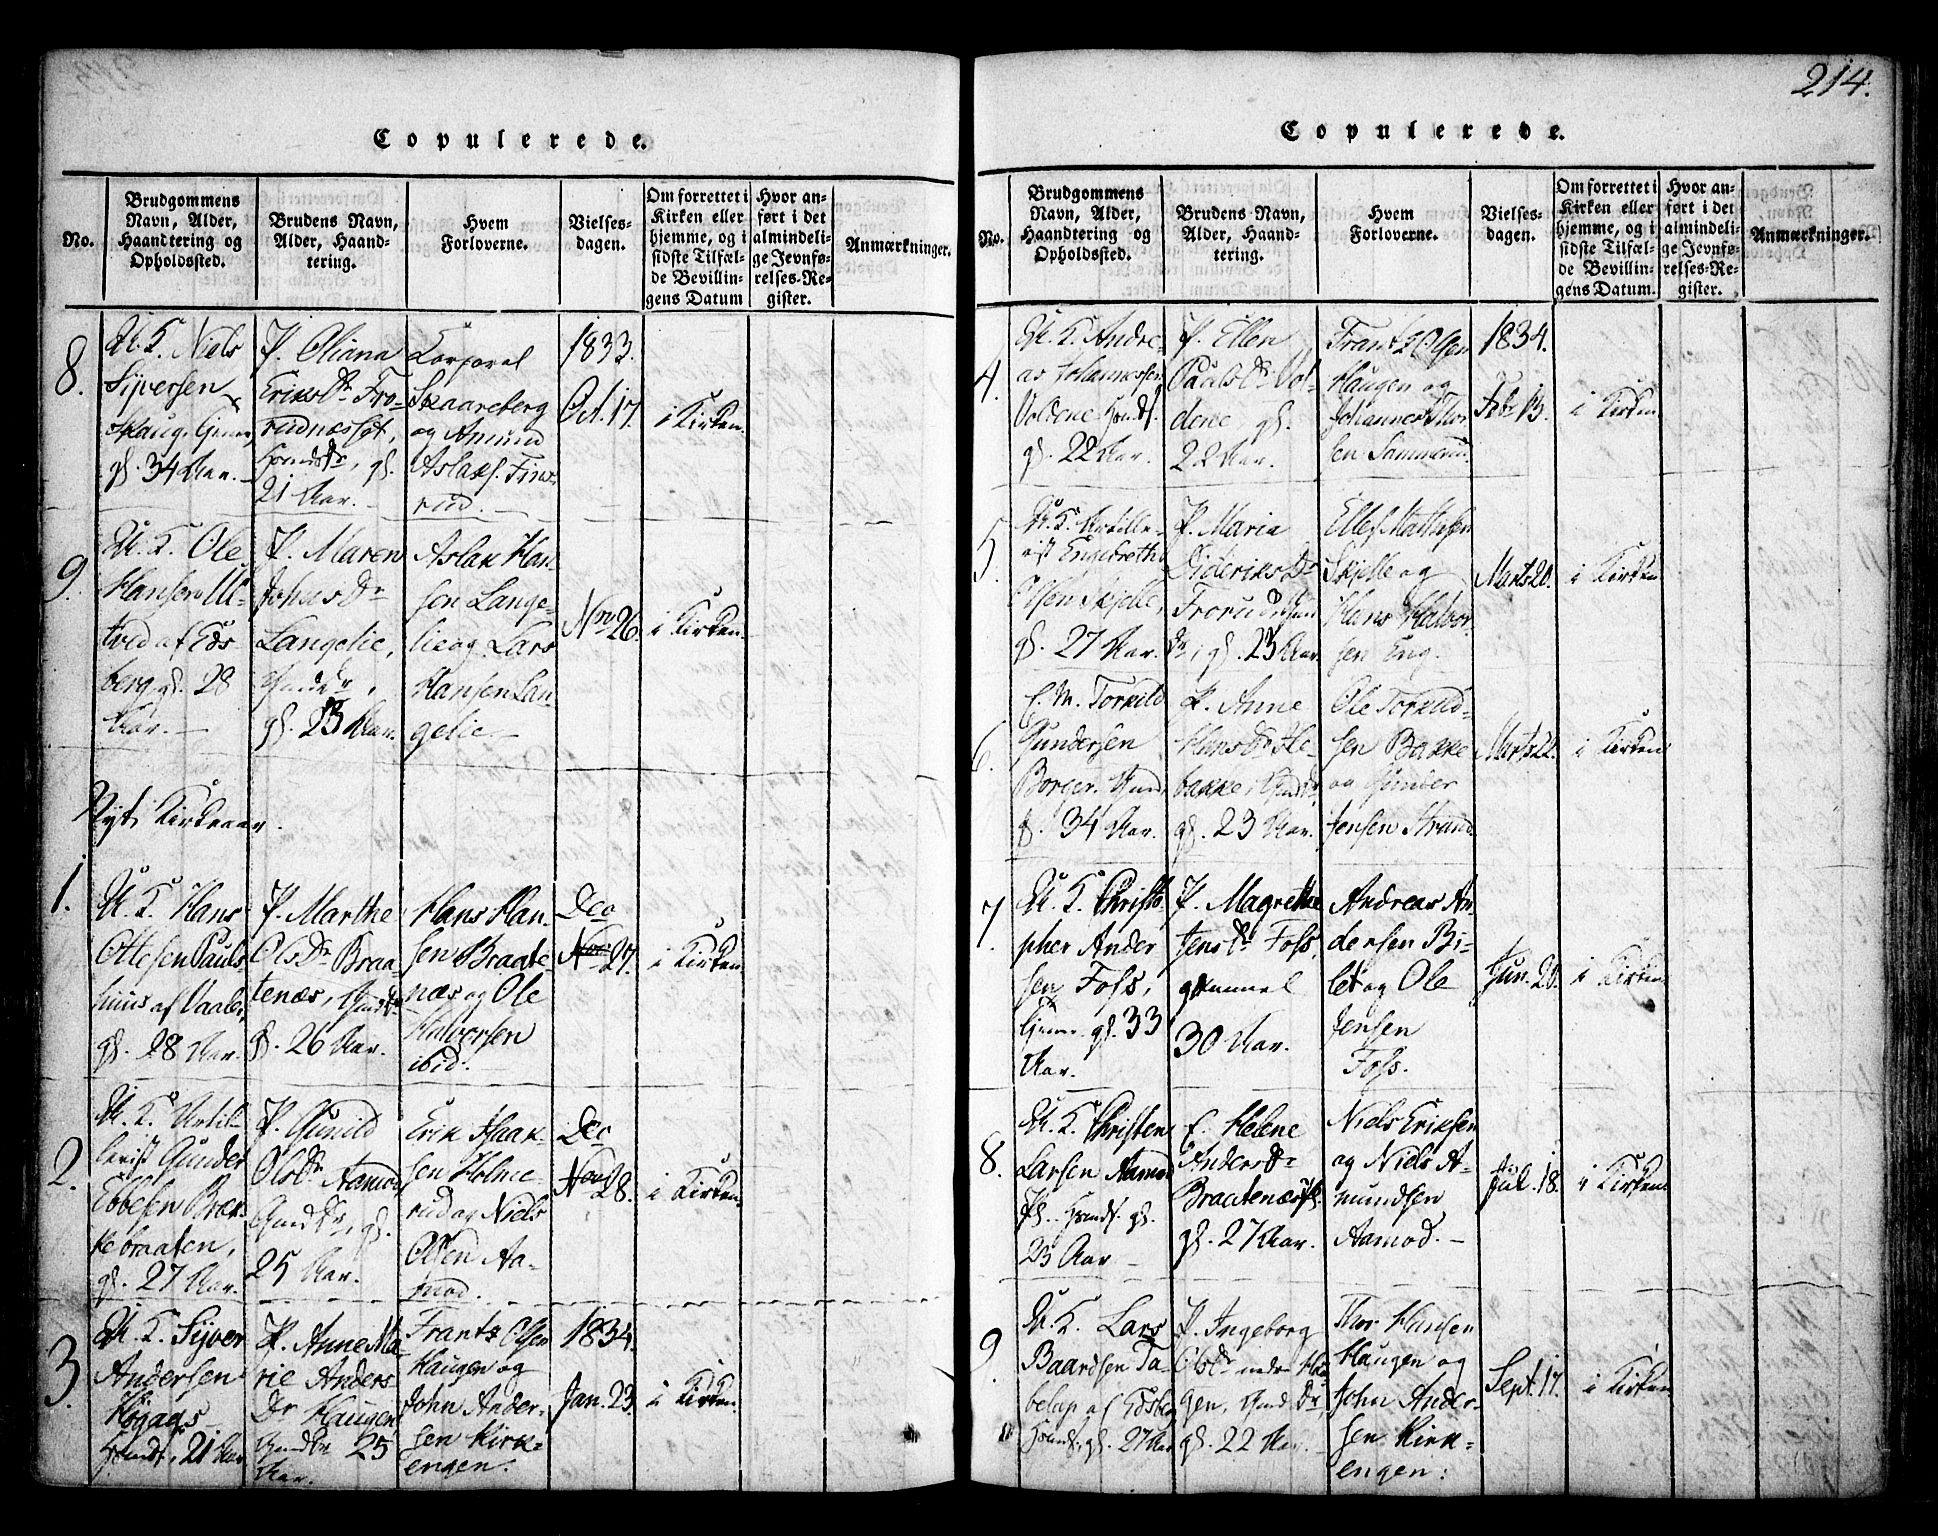 214.
Copulerede.
No.
Brudgommens
Navn, Alder,
Haandtering og
Opholdssted.
Brudens Navn,
Alder, Haand-
tering.
Hvem
Forloverne.
Vielses-
dagen.
Om forrettet i
Kirken eller
hjemme, og i
sidste Tilfæl-
de Bevillin-
gens Datum
Hvor an-
ført i det
almindeli-
ge Jevnfø-
relses-Re-
gister.
Anmærkninger.
8.
U. K. Niels
Sijversen
Skaug
gl. 34 Aar.
P. Oliana
Eriks Dr Fro-
rudnæsset,
gl.
21 Aar.
Corporal
Skaareberg
og Amund
Aslaks.
rud.
1833.
Oct. 17.
i Kirken.
9.
U. K. Ole
Hansen Ul-
tved af Eds
berg gl. 28
Aar.
P. Maren
Johns Dr
Langelie,
gl. 23 Aar.
Aslak Han-
sen Lange-
lie og Lars
Hansen Lan-
gelie.
Nov 26.
i Kirken.
Nyt Kirkeaar.
1.
U. K. Hans
Ottesen Pauls-
huus af Vaaler,
gl. 28 Aar.
P. Marthe
Ols Dr Braa-
tenæs,
gl. 26 Aar.
Hans Han-
sen Braate-
næs og Ole
Halvorsen
ibid.
Dec
27.
i Kirken.
2.
U. K. Artil-
lerist Gunder
Ebbesen Bræk-
kebraaten,
gl. 27 Aar.
P. Gunild
Ols Dr Aamod,
Gmd Dr, gl.
25 Aar.
Erik Haak-
sen Holme-
rud og Niels
Olsen Aa-
mod.
Dec
Nov 28.
i Kirken.
3.
U. K. Sijver
Andersen
21 Aar
P. Anne Ma-
rie Anders
Dr Haugen
25
Aar.
Frants Olsen
Haugen og
John Ander-
sen Kirk-
engen.
1834.
Jan. 23.
i Kirken.
Copulerede.
No.
Brudgommens
Navn, Alder,
Haandtering og
Opholdssted.
Brudens Navn,
Alder, Haand-
tering.
Hvem
Forloverne.
Vielses-
dagen.
Om forrettet i
Kirken eller
hjemme, og i
sidste Tilfæl-
de Bevillin-
gens Datum.
Hvor an-
ført i det
almindeli-
ge Jevnfø-
relses-Re-
gister.
Anmærkninger.
4.
U. K. Andre-
as Johannessen
Voldene
gl. 22 Aar.
P. Ellen
Pauls Dr Vol-
dene, gl.
22 Aar.
Frants Olsen
Haugen og
Johannes Thor-
sen
1834.
Feb 13.
i Kirken
5.
U. K. Artille-
rist Engebreth
Olsen Skjelle,
gl. 27 Aar.
P. Maria
Dideriks Dr
Frorud,
Dr, gl. 23 Aar.
Ellef Mathisen
Skjelle og
Hans Halvor-
sen Eng.
Marts 20.
i Kirken
6.
E. M. Torkild
Gundersen
Borger.
gl. 34 Aar.
P. Anne
Hans Dr He-
bakke,
gl. 23 Aar.
Ole Torkild-
sen Bakke
og Gunder
Jensen Strand.
Marts 22.
i Kirken
7.
U. K. Christo-
pher Ander
sen Foss,
gl. 33
Aar.
P. Magrethe
Jens Dr Foss,
gammel
30 Aar.
Andreas An-
dersen Bi-
let og Ole
Jensen
Foss.
Jun. 20.
i Kirken.
8.
U. K. Christen
Larsen Aamod
gl.
23 Aar
E. Helene
Anders Dr
Braatenæs
gl. 27 Aar.
Niels Eriksen
og Niels A-
mundsen
Aamod.
Jul. 18.
i Kirken
9.
U. K. Lars
Baardsen Ta-
belap af Edsberg
gl. 27 Aar
P. Ingeborg
Ols Dr nedre Hau-
gen, Gmd Dr,
gl. 22 Aar.
Thor Hansen
Haugen og
John Ander-
sen Kirk-
engen.
Sept. 17.
i Kirken